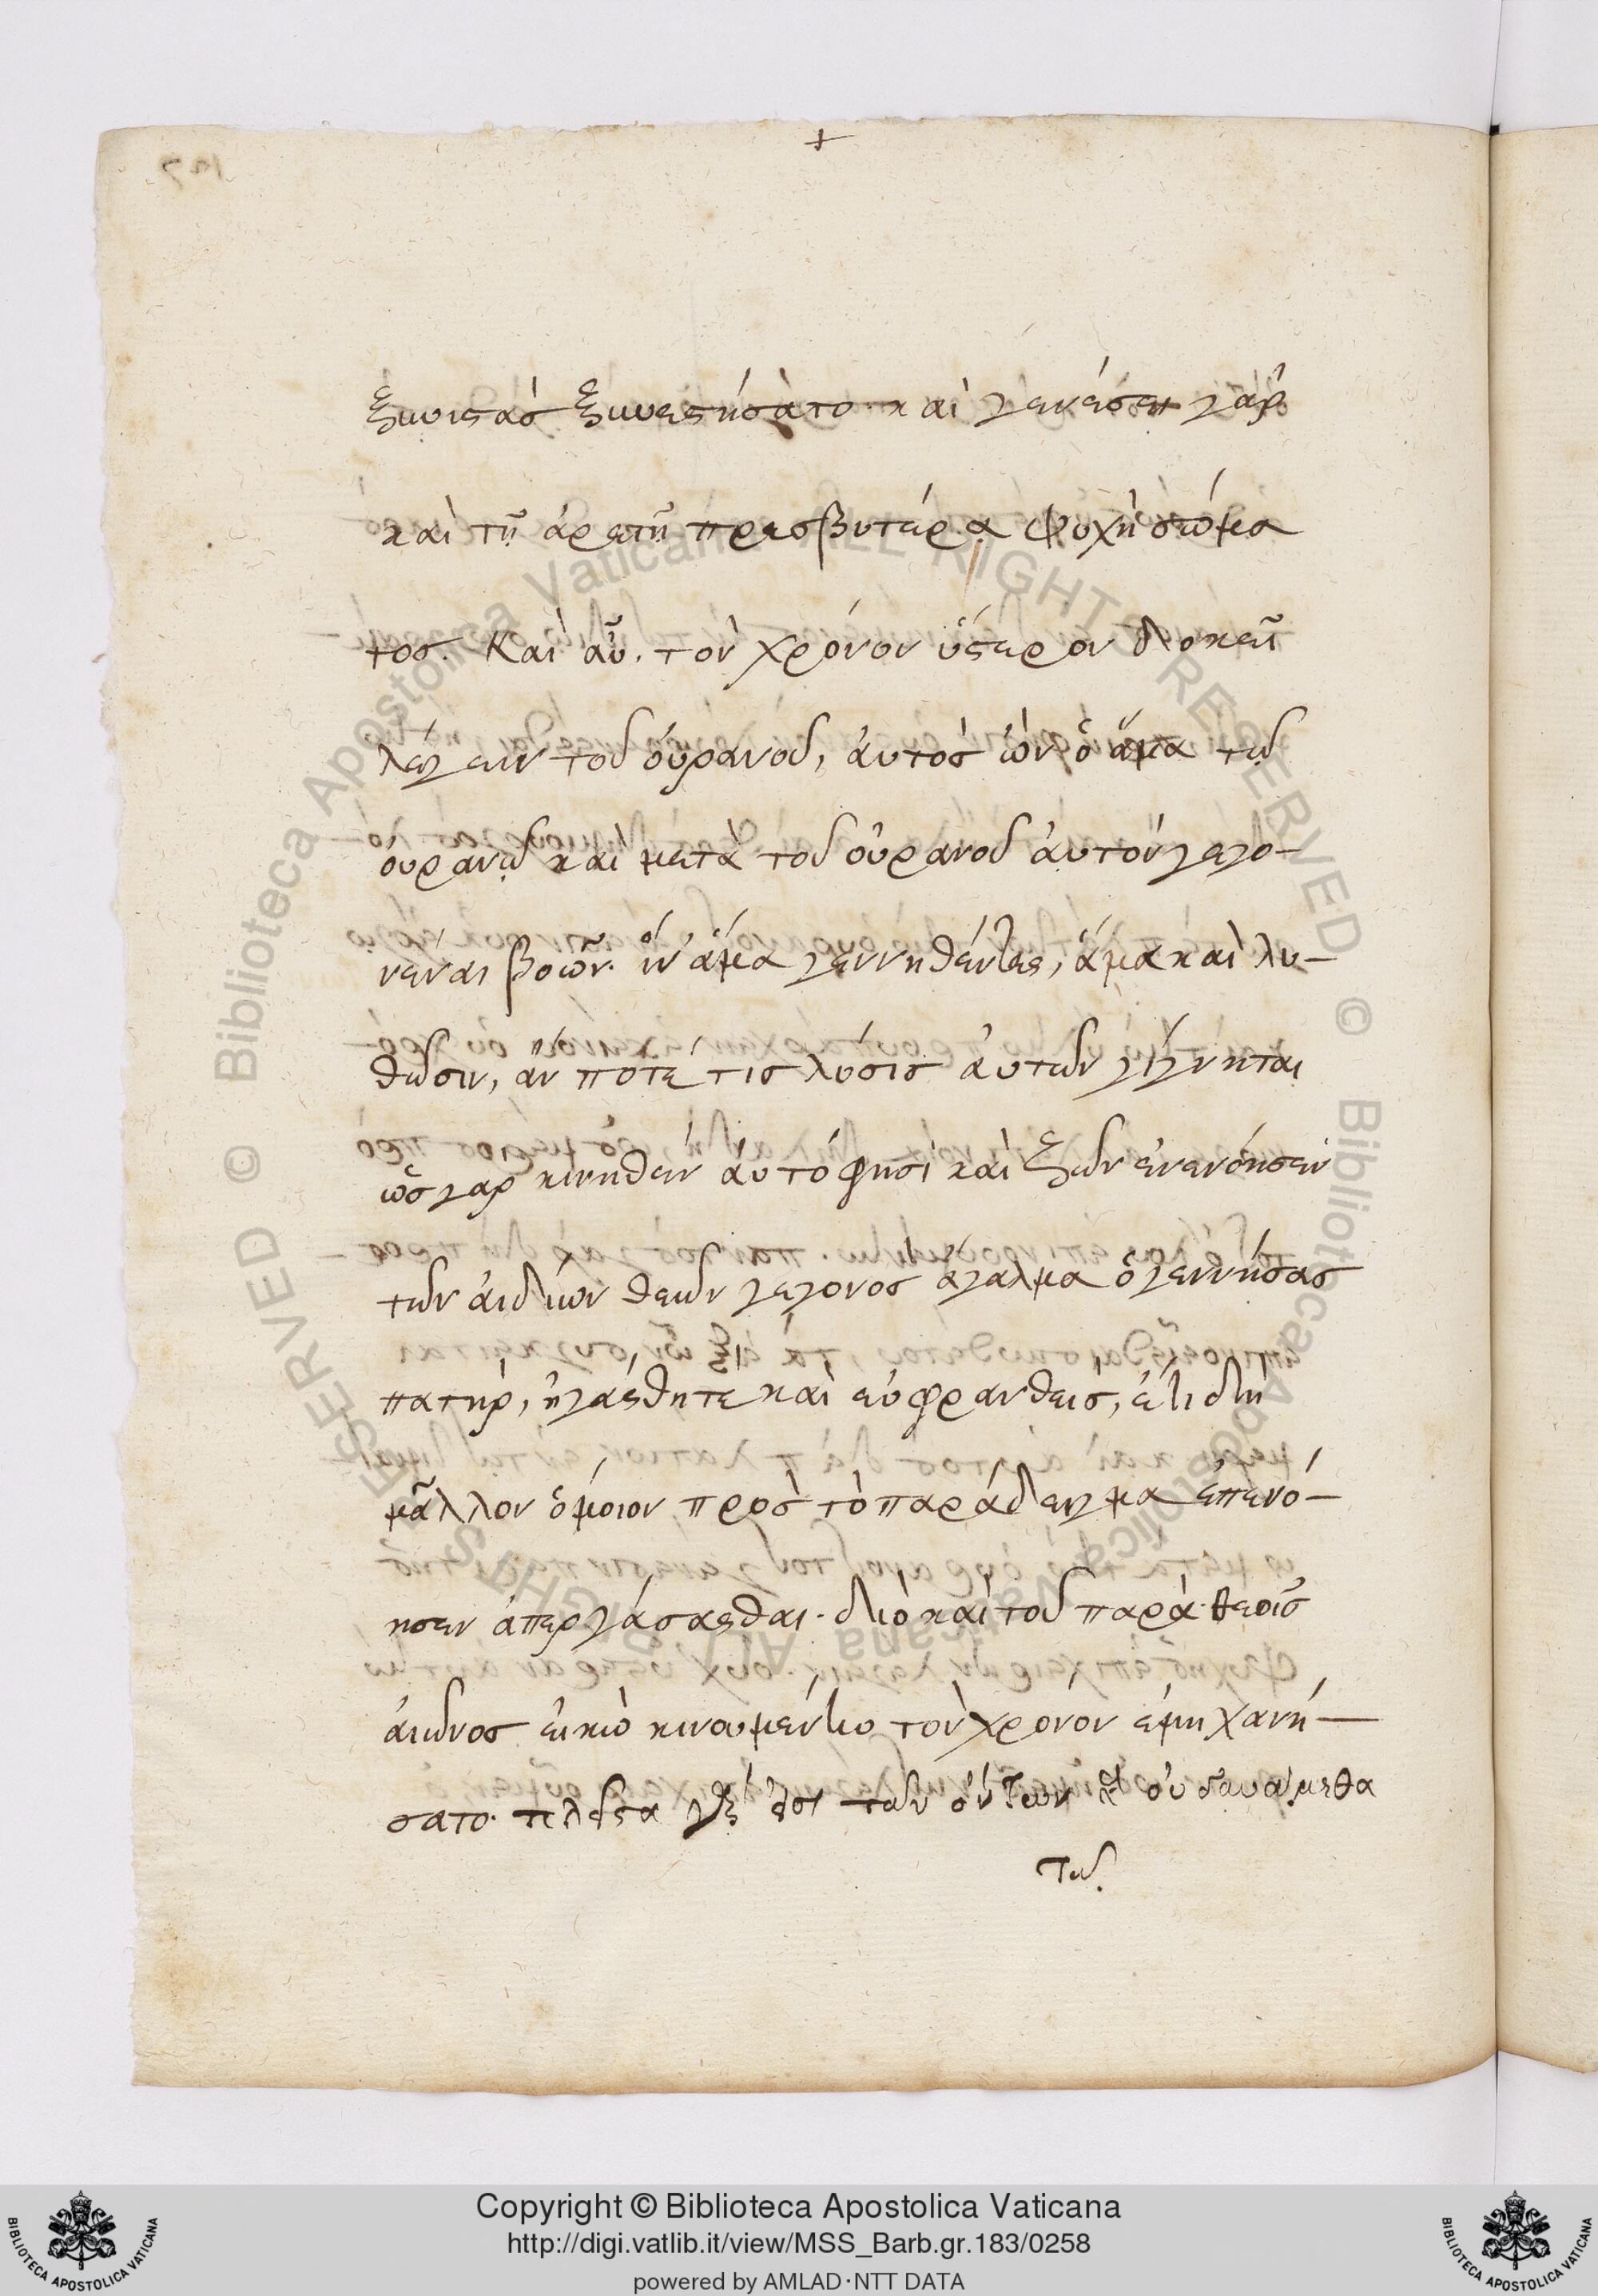 +
ξυνιστὰς ξυνεστήσατο· καὶ γενέσει γὰρ
καὶ τῇ ἀρετῇ πρεσβυτέρα ψυχὴ σώμα
τος. Καὶ αὖ. τὸν χρόνον ὕστερον δοκεῖ
λέγειν τοῦ οὐρανοῦ, αὐτὸς ὢν ὁ ἅμα τῷ
οὐρανῷ καὶ μετὰ τοῦ οὐρανοῦ αὐτὸν γεγο–
νέναι βοῶν· ἵν' ἅμα γεννηθέντες, ἅμα καὶ λυ–
θῶσιν, ἄν ποτέ τις λύσις αὐτῶν γίγνηται
ὡς γὰρ κινηθὲν αὐτό φησι καὶ ξῶν ἐνενόησεν
τῶν ἀϊδίων θεῶν γεγονὸς ἄγαλμα ὁ γεννήσας
πατήρ, ἠγάσθη τε καὶ εὐφρανθεὶς, ἔτι δὴ
μᾶλλον ὅμοιον πρὸς τὸ παράδειγμα ἐπενό–
ησεν ἀπεργάσασθαι· διὸ καὶ τοῦ παρὰ θεοῖς
αἰῶνος εἰκὼ κινουμένην τὸν χρόνον ἐμηχανή–
σατο. πλεῖστα ἐστὶ τῶν ὄντων ἃ οὐ δυνάμεθα
τῷ
Copyright © Biblioteca Apostolica Vaticana
http://digi.vatlib.it/view/MSS_Barb.gr.183/0258
powered by AMLAD·NTT DATA